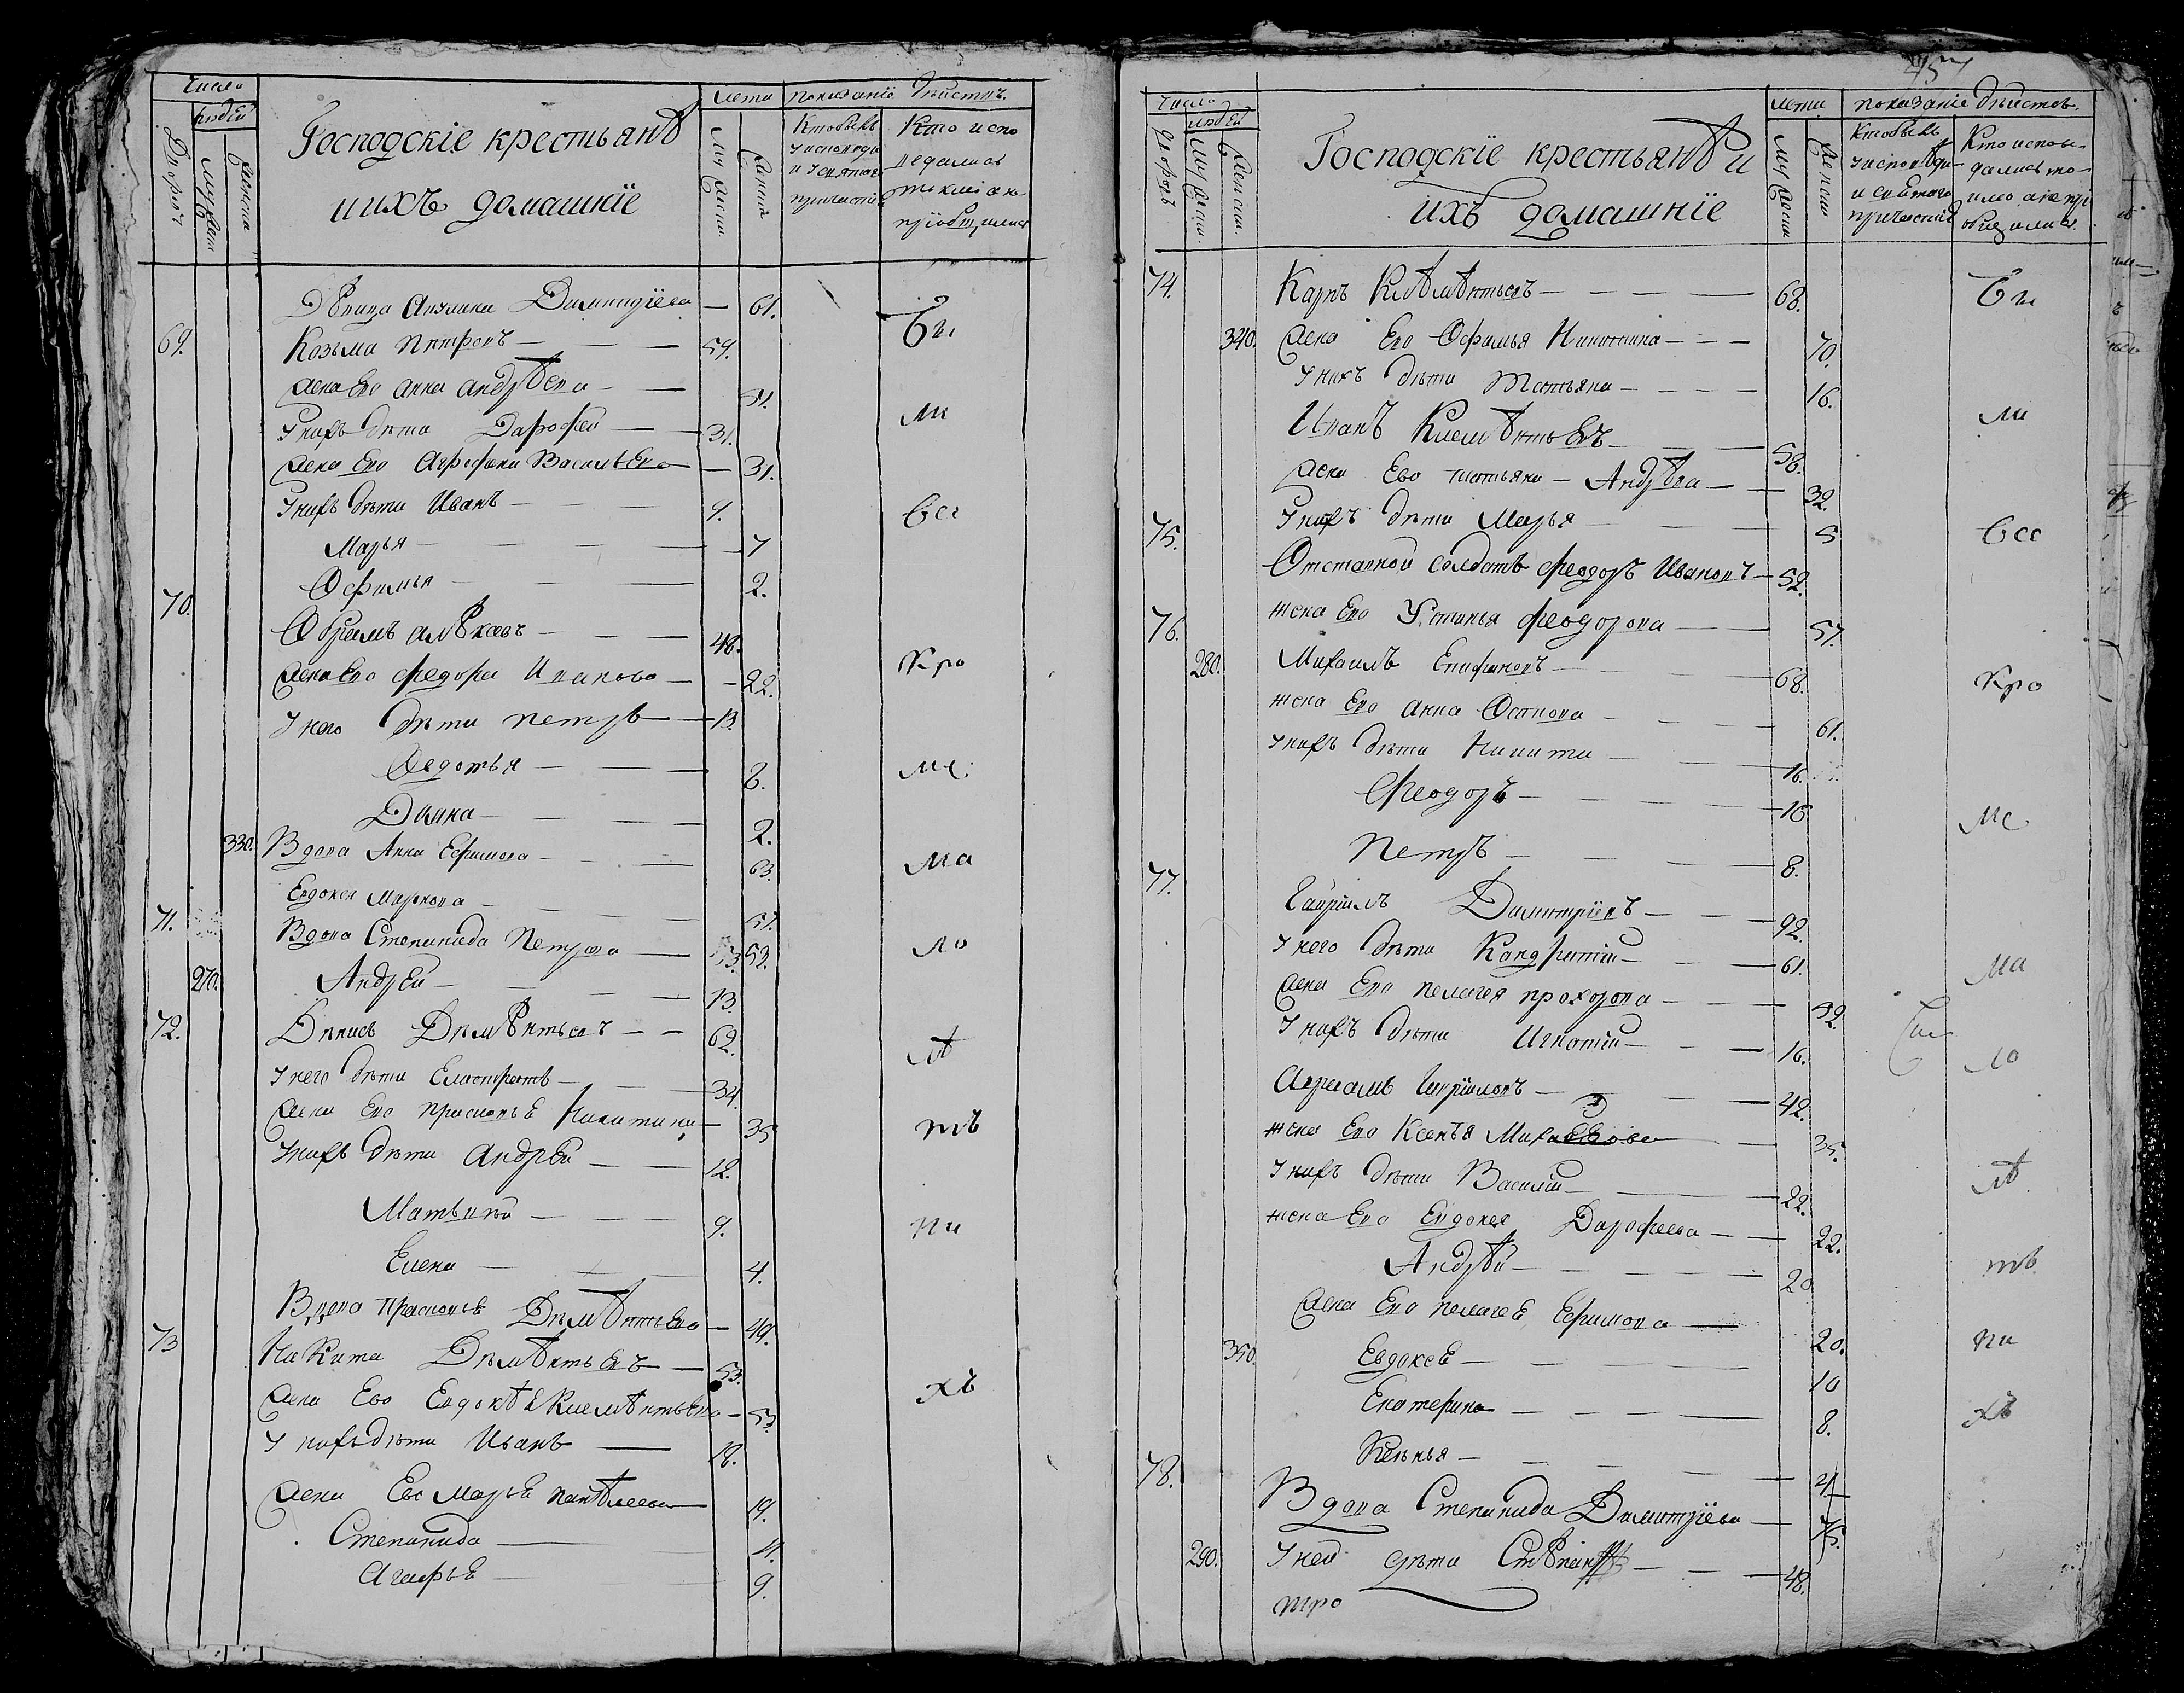 Число
людей
Дворовъ
Мужеск
Женска
Господскіе крестьянѣ
и ихъ домашніе
лета
Мужеска
Женска
показаніе действъ.
Кто былъ
у исповеди
и у святаго
причастія
Кто испо
ведались
токмо а не
приобщились
Дѣвица Димитріева — 61.
69. Козьма Петровъ — 59.
Жена Ево Анна Андрѣева — 51.
У нихъ дети Дарофей — 31.
Жена Ево Агрофена Васильева — 31.
У нихъ дети Иванъ — 9.
Марья — 7
Офимья — 2.
70.
Обрамъ — 48.
Жена Ево Федора Иванова — 22.
У него дети Петръ — 13.
Федотья — 8.
Дияна — 2.
330. Вдова Анна Ефимова — 63.
Евдокея Маркова — 51.
71. Вдова Степанида Петрова — 53.
270. Андрей — 13.
72. Денисъ Демѣнтьевъ — 62.
У него дети Елистратъ — 34.
Жена Ево Прасковье Никитина — 35
У нихъ дети Андрей — 12.
Матвией — 9.
Елена — 4.
Вдова Прасковье Демѣнтьева — 49.
73 Никита Демѣнтьевъ — 53.
Жена Ево Евдокѣе Клемѣнтьева — 53.
У нихъ дети Иванъ — 18.
Жена Ево Марье Пантѣлеева 19.
Степанида — 11.
Агафье — 9.
Вы
ли
Все
Кро
ме
ма
ло
лѣ
тъ
ни
хъ
457
Число
людей
Дворовъ
Мужеск.
Женски.
Господскіе крестьянѣ и
ихъ домашніе
лета
Мужеска
Женски
показаніе действъ.
Кто былъ
у исповѣди
и святаго
причастія
Кто испове-
дались то-
кмо а не при
общились.
74. Карпъ Клѣмѣнтьевъ — 68.
340. Жена Ево Офимья Никитина — 70.
У нихъ дети Татьяна — 16.
Иванъ Клемѣнтьевъ — 58.
Жена Ево Татьяна — Андрѣва — 32.
75. У нихъ дети Марья — 5
Отставной солдатъ Феодоръ Ивановъ — 52.
76. Жена Ево Устинья Феодорова — 57.
280. Михаилъ Епифановъ — 68.
Жена Ево Анна Осипова — 61.
У нихъ дети Никита — 16.
Феодоръ — 16
Петръ — 8.
77. Гаврилъ Димитриевъ — 92.
У него дети Кандратій — 61.
Жена Ево Пелагея Прохорова — 32.
У нихъ дети Игнатий — 16.
Авраамъ Гавриловъ — 42.
Жена Ево Ксенья — 35.
У нихъ дети Василий — 22.
Жена Ево Евдокея Дарофеева — 22.
Андрѣй — 20
Жена Ево Пелагее Ефимова — 20.
350. Евдокее — 10
Екатерина — 8.
Ксенья — 4
78. Вдова Степанида Димитриева — 75.
290. У ней дети Стѣпан — 48.
тро
Вы
ли
Все
Кро
ме
ма
ло
лѣ
тъ
ни
хъ